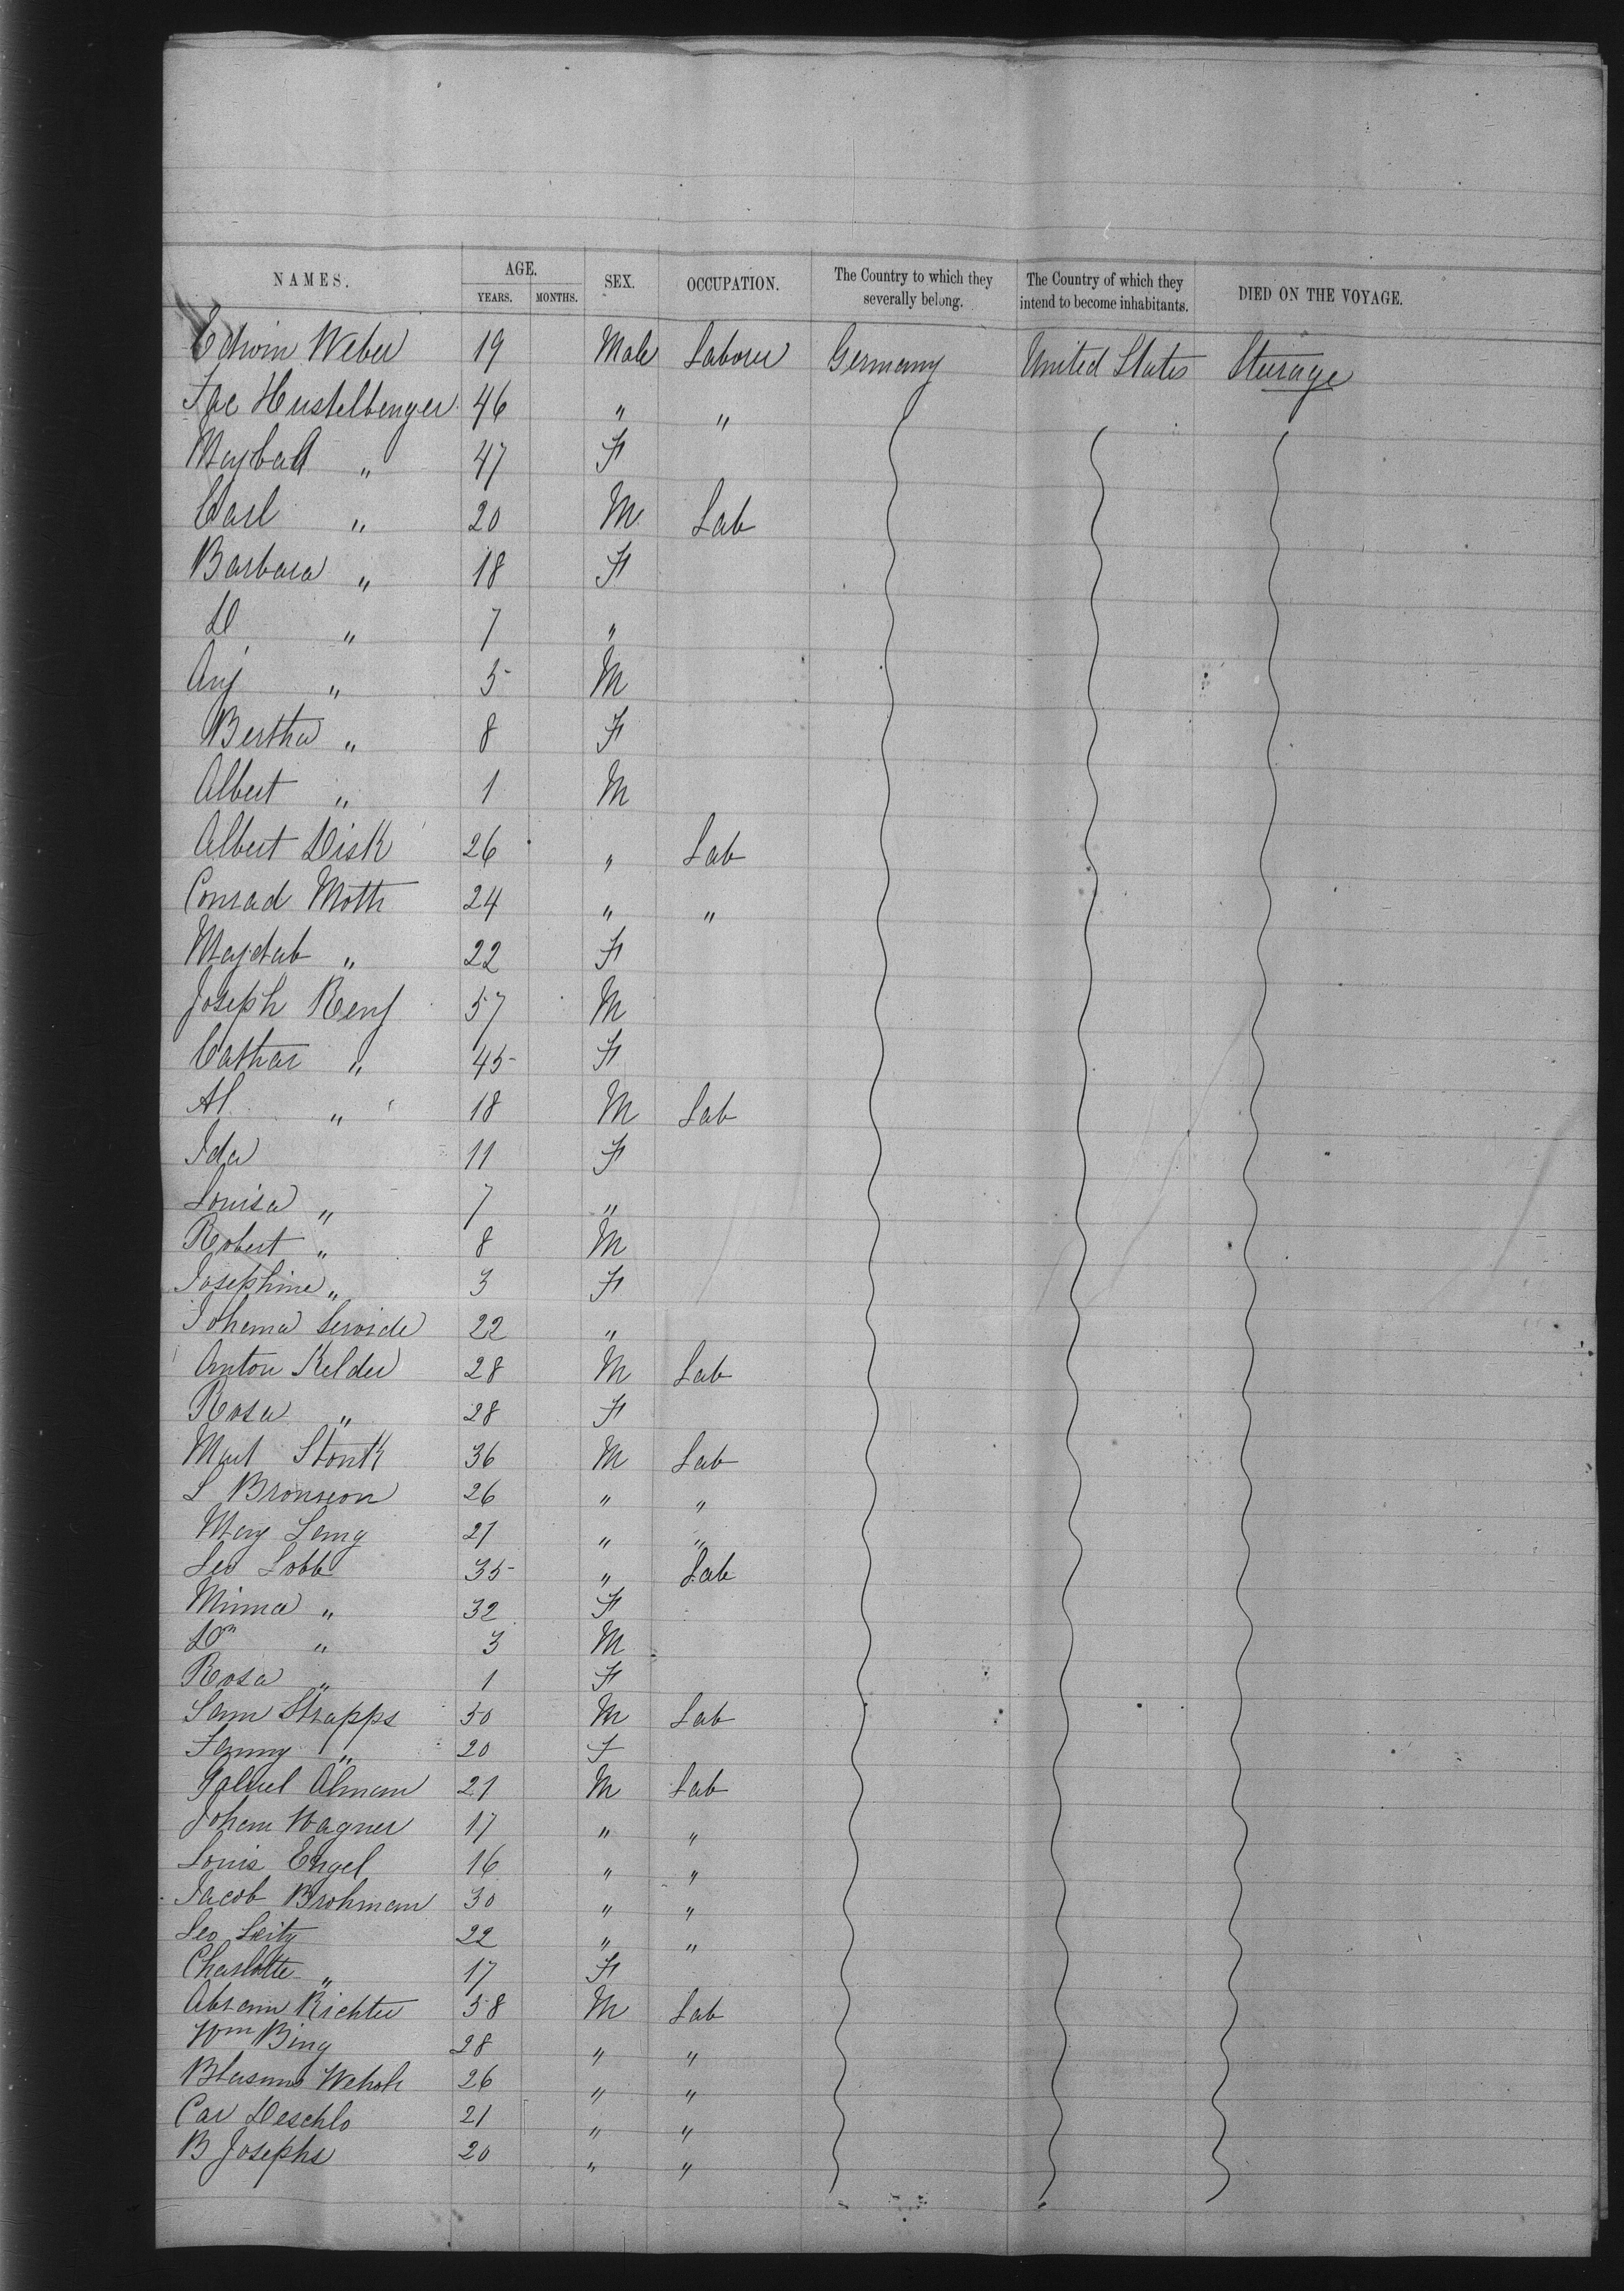 NAMES. AGE. SEX. OCCUPATION. The Country to which they severally belong. The Country of which they intend to become inhabitants. DIED ON THE VOYAGE.
YEARS. MONTHS.
Edwin Weber 19 Male Labourer Germany United States Steerage
Jac Hustelbenger 46 " "
" 47 F
Carl " 20 M Lab
Barbara " 18 F
D " 7 "
" 5 M
Bertha " 8 F
Albert " 1 M
Albert Disk 26 " Lab
Conrad Moth 24 " "
Majdab " 22 F
Joseph Renf 57 M
Cathar " 45 F
Al " 18 M Lab
Ida 11 F
Louisa " 7 "
Robert " 8 M
Josephine " 3 F
22 "
Anton Kelder 28 M Lab
Rosa " 28 F
Mart Stonk 36 M Lab
L Bronseon 26 " "
Mary Lang 21 " "
Leo Lobb 35 " Lab
Minna " 32 F
" 3 M
Rosa " 1 F
Sam Strapps 50 M Lab
Fanny " 20 F
Alman 21 M Lab
Johan Wagner 17 " "
Louis Engel 16 " "
Jacob Brohman 30 " "
Leo Leity 22 " "
Charlotte " 17 F
Abram Richter 58 M Lab
Wm Bing 28 " "
26 " "
Car Deschlo 21 " "
B Josephs 20 " "